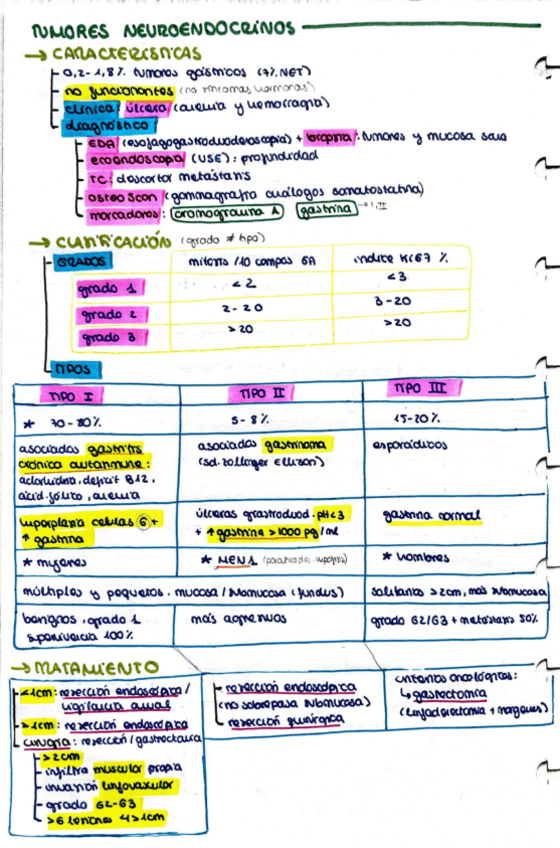 TUMORES NEUROENDOCRINOS
→ CARACTERÍSTICAS
0,2-1,8% tumores gástricos (7% NET)
no funcionantes (no síntomas hormonas)
clínica: úlcera (anemia y hemorragia)
diagnóstico
EDA (esofagogastroduodenoscopia) + biopsia: tumores y mucosa sana
ecoendoscopia (USE): profundidad
TC: descartar metástasis
octreoScan (gammagrafía análogos somatostatina)
marcadores: cromogranina A gastrina → I, II
→ CLASIFICACIÓN (grado ≠ tipo)
GRADOS
mitosis /10 campos GA
índice Ki67 %
grado 1 <2 <3
grado 2 2-20 3-20
grado 3 >20 >20
TIPOS
TIPO I TIPO II TIPO III
* 70-80% 5-8% 15-20%
asociados gastritis crónica autoinmune: aclorhidria, déficit B12, ácid. fólico, anemia
asociados gastrinoma (sd. zollinger Ellison)
esporádicos
hiperplasia células G + ↑ gastrina
úlceras grastroduod. pH<3 + ↑ gastrina >1000 pg/ml
gastrina normal
* mujeres * MEN1 * hombres
múltiples y pequeños. mucosa/submucosa (fundus)
solitarios >2cm, más submucosa
benignos, grado 1 supervivencia 100%
más agresivos
grado G2/G3 + metástasis 50%
→ TRATAMIENTO
≤1cm: resección endoscópica/ vigilancia anual
>1cm: resección endoscópica
cirugía: resección/gastrectomía
>2cm
infiltra muscular propia
invasión linfovascular
grado G2-G3
>6 lesiones 4>1cm
resección endoscópica
(no sobrepasa submucosa)
resección quirúrgica
criterios oncológicos:
↳ gastrectomía
(linfadenectomía + márgenes)